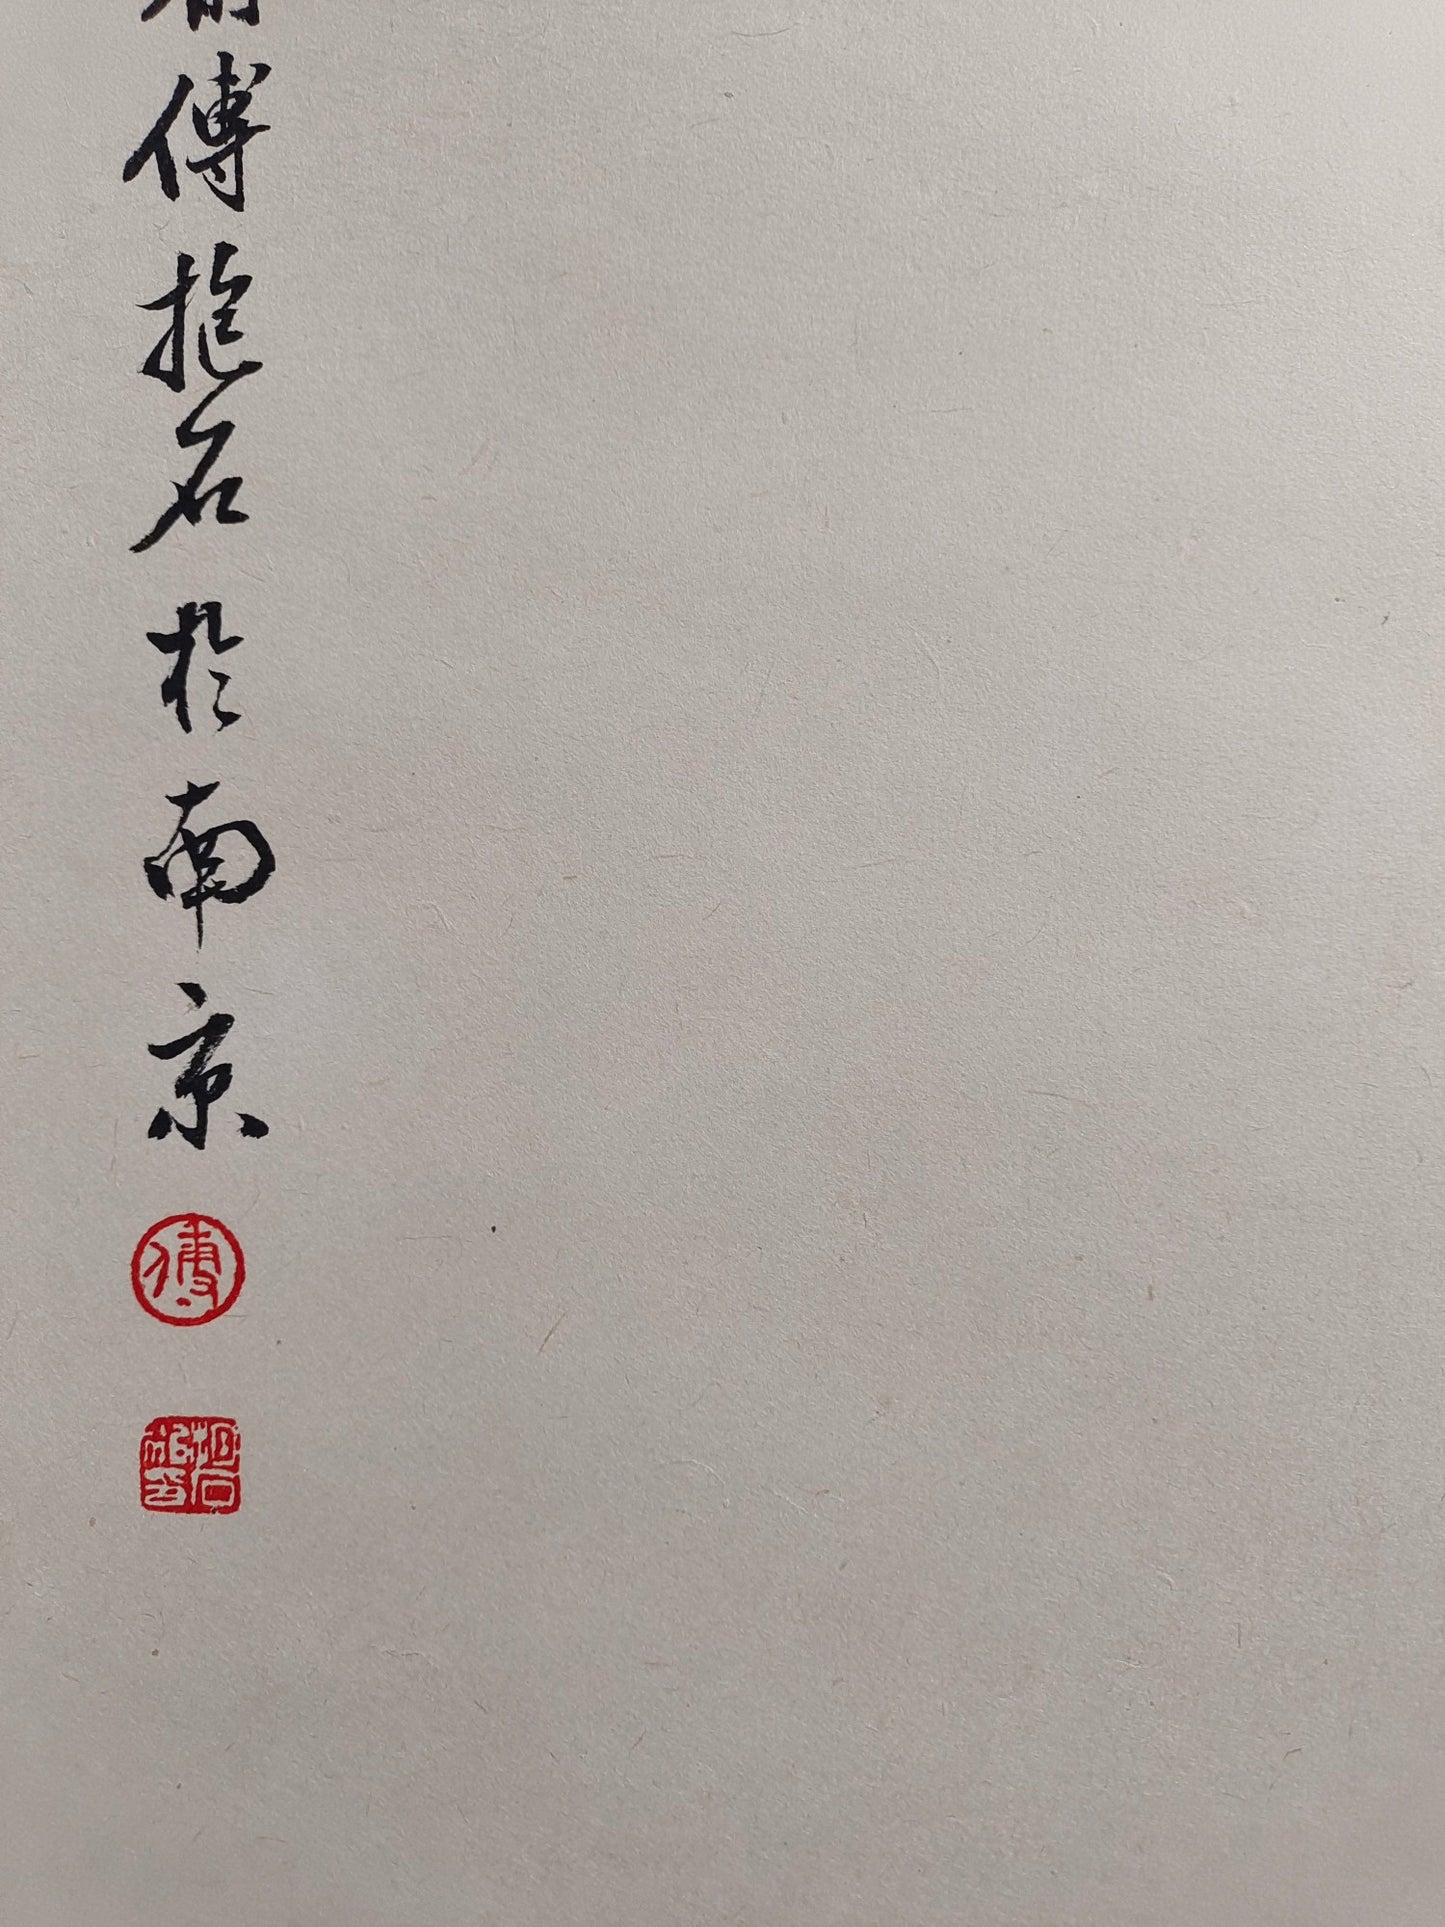 傅抱石於南京
傅
抱石